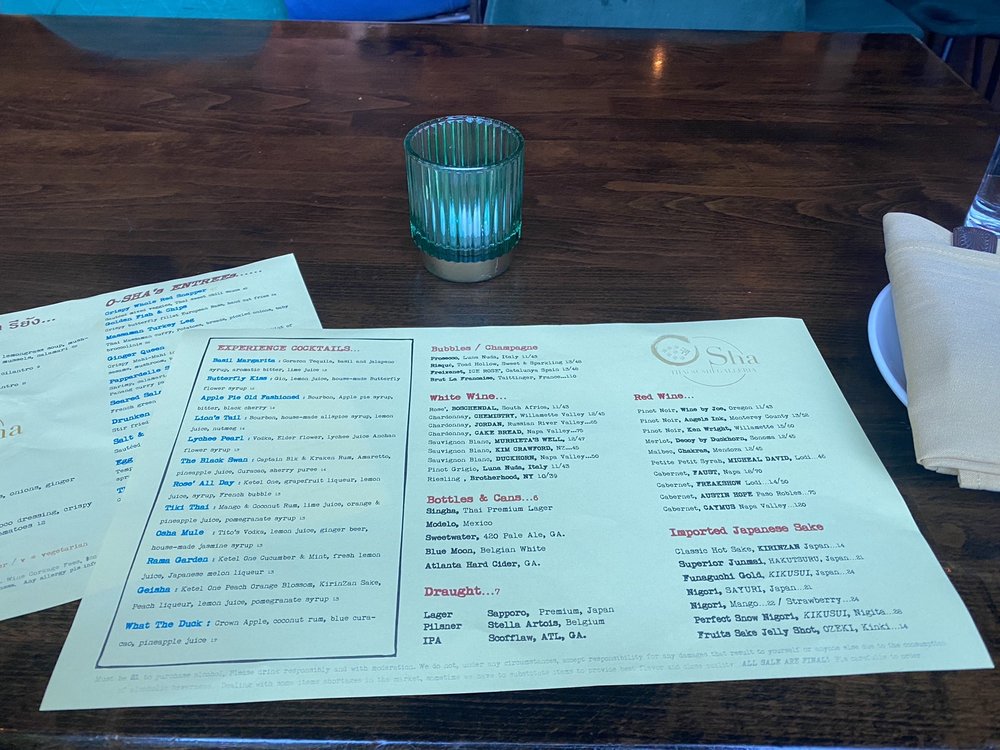 รียัง...
lemongrass soup, mush-
mussels, calamari
cilantro
cilantro
onions, ginger
dressing, crispy
tomatoes 12
vegetarian
Wine Corkage Fees,
Any Allergy
O-SHA's ENTREES......
Crispy Whole Red Snapper
Sauteed mixed veggies, Thai sweet chili sauce
Golden Fish & Chips
Crispy butterfly fillet European Bass, hand cut fries
Massaman Turkey Leg
Thai Massaman curry, potatoes, breads, pickled onions, baby
broccolinis
Ginger Queen
Crispy Mahi-Mahi
sesame, mushroom,
Pappardelle
Shrimp, calamari,
Panang curry
Seared
French green
Drunken
Stir fried
Salt &
Sauteed
Egg
EXPERIENCE COCKTAILS...
Basil Margarita : Corazon Tequila, basil and jalapeno
syrup, aromatic bitter, lime juice 13
Butterfly Kiss : Gin, lemon juice, house-made Butterfly
flower syrup
Apple Pie Old Fashioned : Bourbon, Apple pie syrup,
bitter, black cherry 14
Lion's Tail : Bourbon, house-made allspice syrup, lemon
juice, nutmeg 14
Lychee Pearl : Vodka, Elder flower, lychee juice Anchan
flower syrup 13
The Black Swan : Captain Blk & Kraken Rum, Amaretto,
pineapple juice, Curacao, sherry puree 14
Rose' All Day : Ketel One, grapefruit liqueur, lemon
juice, syrup, French bubble 13
Tiki Thai : Mango & Coconut Rum, lime juice, orange &
pineapple juice, pomegranate syrup 13
Osha Mule : Tito's Vodka, lemon juice, ginger beer,
house-made jasmine syrup 13
Rama Garden : Ketel One Cucumber & Mint, fresh lemon
juice, Japanese melon liqueur 13
Geisha : Ketel One Peach Orange Blossom, KirinZan Sake,
Peach liqueur, lemon juice, pomegranate syrup 13
What The Duck : Crown Apple, coconut rum, blue cura-
cao, pineapple juice 13
Bubbles / Champagne
Prosecco, Luna Nuda, Italy 11/43
Risque, Toad Hollow, Sweet & Sparkling 13/48
Freixenet, ICE ROSE', Catalunya Spain 13/48
Brut La Francaise, Taittinger, France...110
White Wine...
Rose', BOSCHENDAL, South Africa, 11/43
Chardonnay, CHEMISTRY, Willamette Valley 12/45
Chardonnay, JORDAN, Russian River Valley...65
Chardonnay, CAKE BREAD, Napa Valley...75
Sauvignon Blanc, MURRIETA'S WELL, 12/47
Sauvignon Blanc, KIM CRAWFORD, NZ...45
Sauvignon Blanc, DUCKHORN, Napa Valley...50
Pinot Grigio, Luna Nuda, Italy 11/43
Riesling , Brotherhood, NY 10/39
Bottles & Cans...6
Singha, Thai Premium Lager
Modelo, Mexico
Sweetwater, 420 Pale Ale, GA.
Blue Moon, Belgian White
Atlanta Hard Cider, GA.
Draught...7
Lager Sapporo, Premium, Japan
Pilsner Stella Artois, Belgium
IPA Scofflaw, ATL, GA.
O'Sha
Red Wine...
Pinot Noir, Wine by Joe, Oregon 11/43
Pinot Noir, Angels Ink, Monterey County 13/52
Pinot Noir, Ken Wright, Willamette 15/60
Merlot, Decoy by Duckhorn, Sonoma 12/45
Malbec, Chakras, Mendoza 12/45
Petite Petit Syrah, MICHEAL DAVID, Lodi...46
Cabernet, FAUST, Napa 18/70
Cabernet, FREAKSHOW Lodi...14/50
Cabernet, AUSTIN HOPE Paso Robles...75
Cabernet, CAYMUS Napa Valley...120
Imported Japanese Sake
Classic Hot Sake, KIRINZAN Japan...14
Superior Junmai, HAKUTSURU, Japan...21
Funaguchi Gold, KIKUSUI, Japan...24
Nigori, SAYURI, Japan...21
Nigori, Mango...22 / Strawberry...24
Perfect Snow Nigori, KIKUSUI, Niigita...28
Fruits Sake Jelly Shot, OZEKI, Kinki...14
Must be 21 to purchase alcohol, Please drink responsibly and with moderation. We do not, under any circumstances, accept responsibility for any damages that result to yourself or anyone else due to the consumption
of alcoholic beverages. Dealing with some items shortages in the market, sometime we have to substitute items to provide best flavor and class quality. ALL SALE ARE FINAL!